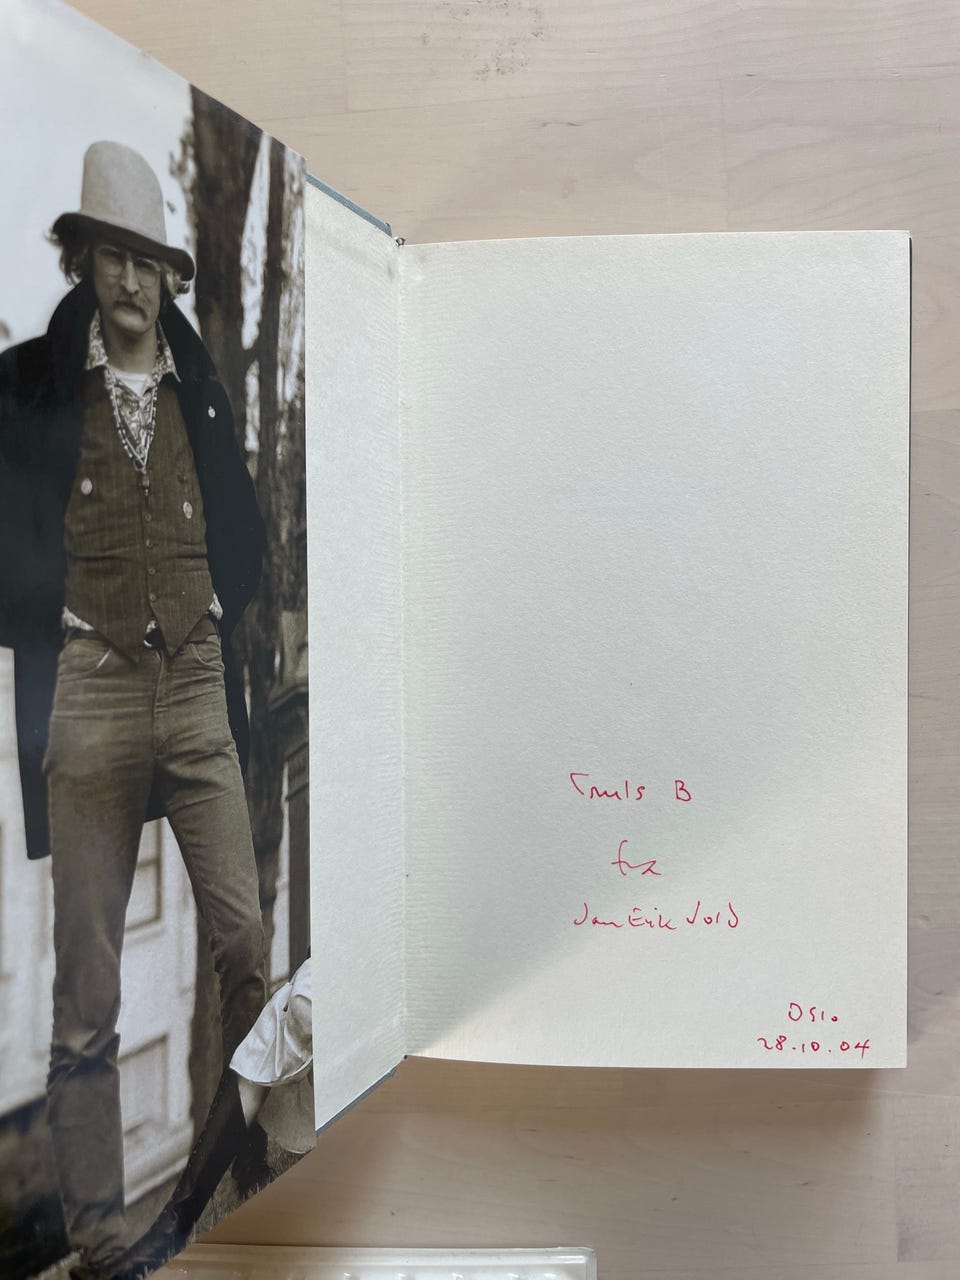 Truls B
fra
Jan Erik Vold
Oslo
28.10.04